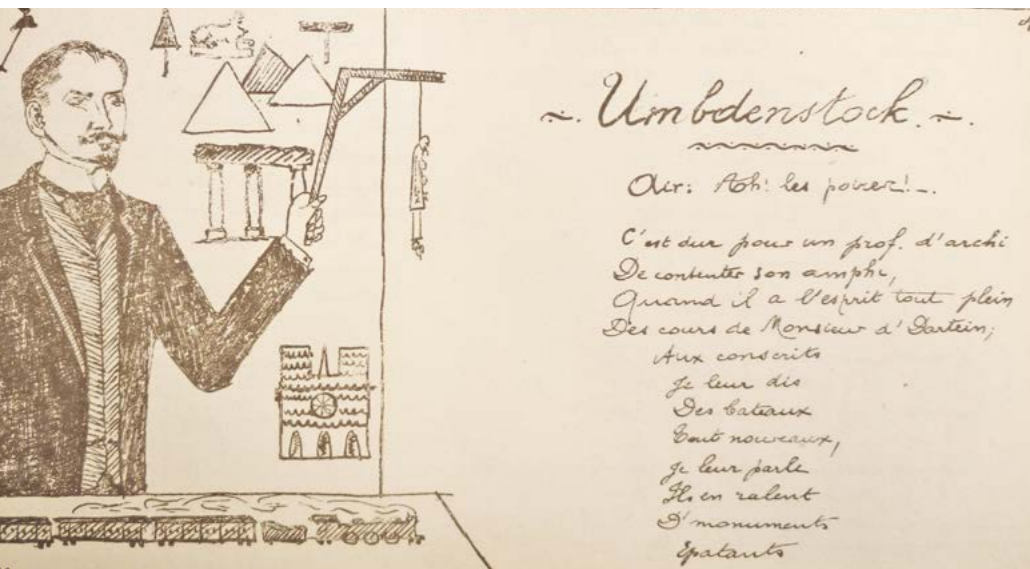 ~. Umbdenstock. ~.
Air: Ah! les poires!_.
C'est dur pour un prof. d'archi
De contenter son amphi,
Quand il a l'esprit tout plein
Des cours de Monsieur d'Dartein;
Aux conscrits
Je leur dis
Des bateaux
Tout nouveaux,
Je leur parle
Ils en ralent
D'monuments
Epatants